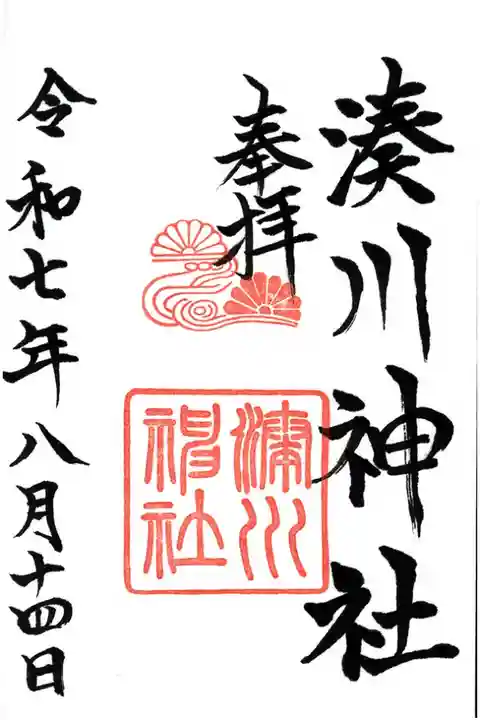 湊川神社
奉拝
湊川
神社
令和七年八月十四日